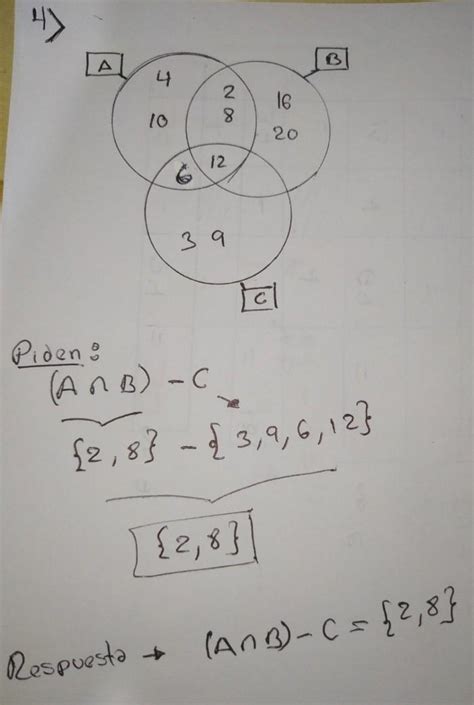 4)
A
B
4
2
16
10
8
20
6
12
3 9
C
Piden:
(A ∩ B) - C
{2,8} - {3,9,6,12}
{2,8}
Respuesta → (A∩B) - C = {2,8}